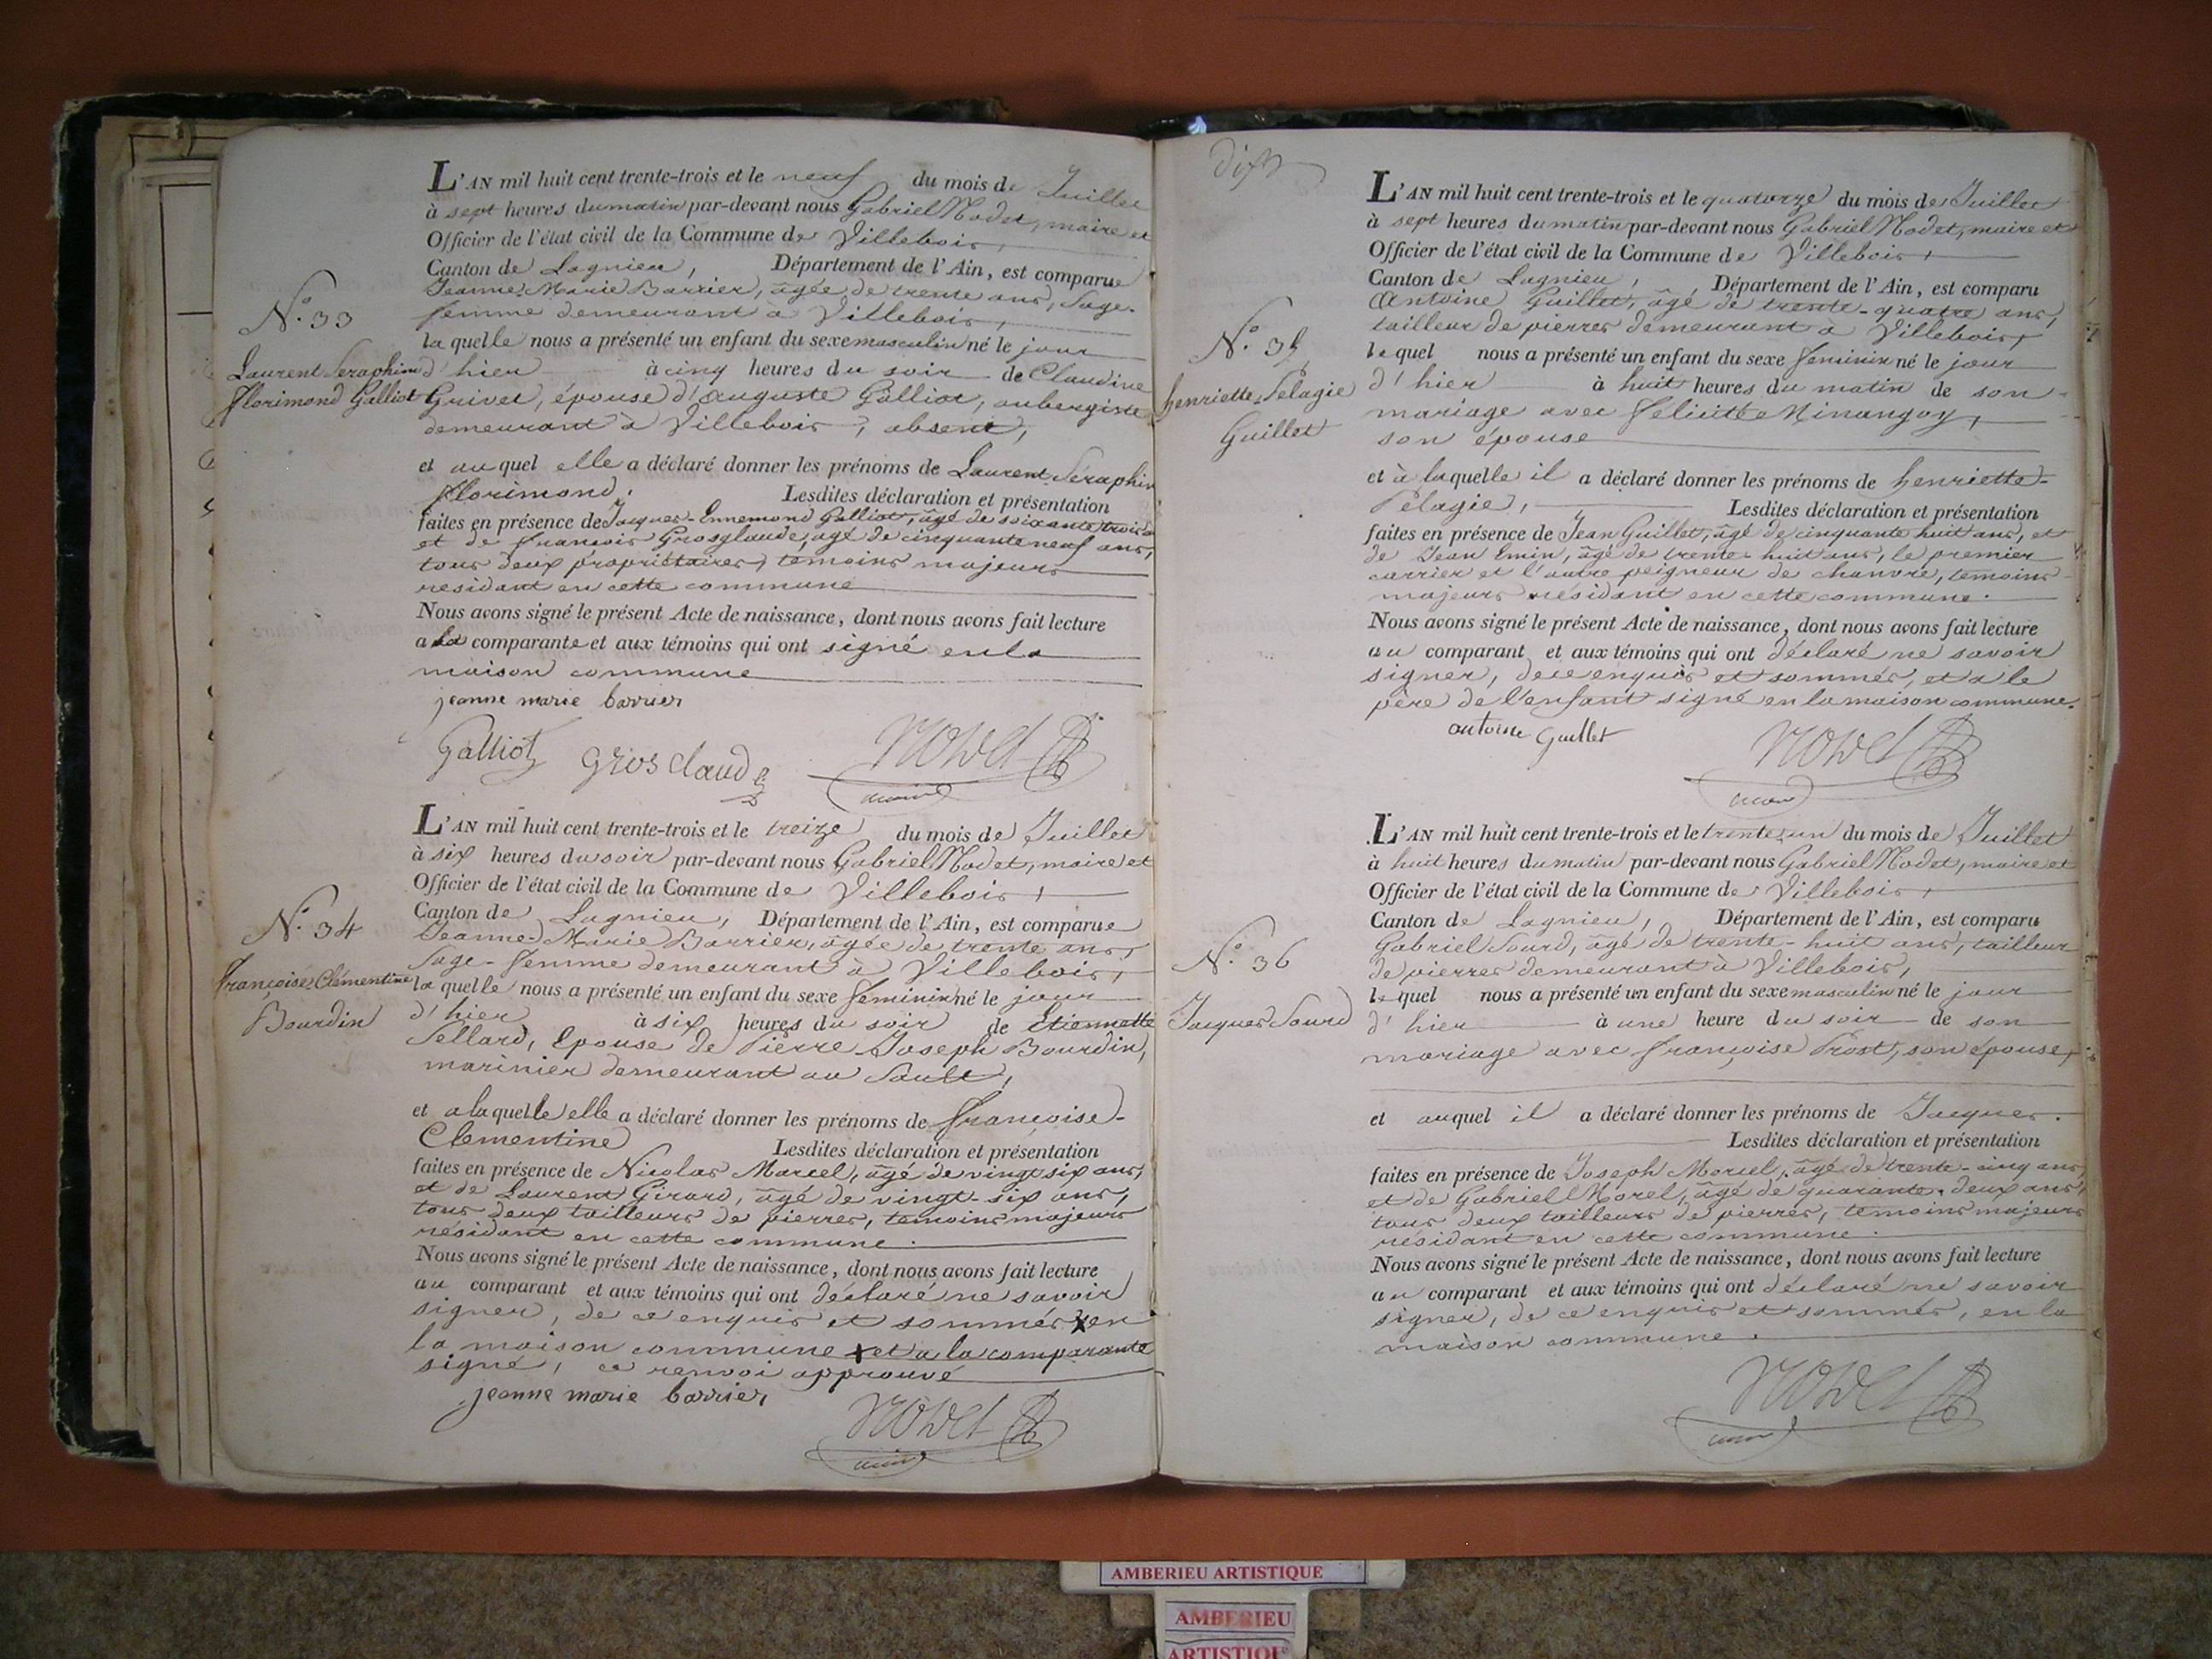 L'AN mil huit cent trente-trois et le neuf du mois de Juillet
à sept heures du matin par-devant nous Gabriel Nodet, maire et
Officier de l'état civil de la Commune de Villebois,
Canton de Lagnieu, Département de l'Ain, est comparue
Jeanne-Marie Barrier, âgée de trente ans, Sage-
femme demeurant a Villebois,
N.o 33
la quelle nous a présenté un enfant du sexe masculin né le jour
Laurent Seraphim
Florimond Galliot
d'hier à cinq heures du soir de Claudine
Grivet, épouse d'Auguste Galliot, aubergiste
demeurant à Villebois, absent,
et au quel elle a déclaré donner les prénoms de Laurent Séraphin
florimond. Lesdites déclaration et présentation
faites en présence de Jacques-Ennemond Galliot, âgé de soixante trois
et de françois Grosglaude, agé de cinquante neuf ans,
tous deux propriétaires, temoins majeurs
residant en cette commune
Nous avons signé le présent Acte de naissance, dont nous avons fait lecture
a la comparante et aux témoins qui ont signé en la
maison commune
jeanne marie barrier
Galliot Gros claude Nodet
maire
L'AN mil huit cent trente-trois et le treize du mois de Juillet
à six heures du soir par-devant nous Gabriel Nodet, maire et
Officier de l'état civil de la Commune de Villebois,
Canton de Lagnieu, Département de l'Ain, est comparue
N.o 34
Jeanne-Marie Barrier, âgée de trente ans,
Sage-femme demeurant à Villebois,
françoise-Clémentine
Bourdin
la quelle nous a présenté un enfant du sexe féminin né le jour
d'hier à six heures du soir de Etiennette
Sellard, Epouse de Pierre-Joseph Bourdin,
marinier demeurant au Sault,
et a laquelle elle a déclaré donner les prénoms de françoise-
Clementine Lesdites déclaration et présentation
faites en présence de Nicolas Marcel, âgé de vingt six ans,
et de Laurent Girard, âgé de vingt-six ans,
tous deux tailleurs de pierres, temoins majeurs
résidant en cette commune.
Nous avons signé le présent Acte de naissance, dont nous avons fait lecture
au comparant et aux témoins qui ont déclaré ne savoir
signer, de ce enquis et sommés X en
la maison commune X et a la comparante
signé, ce renvoi approuvé
jeanne marie barrier
Nodet
maire
dix
L'AN mil huit cent trente-trois et le quatorze du mois de Juillet
à sept heures du matin par-devant nous Gabriel Nodet, maire et
Officier de l'état civil de la Commune de Villebois,
Canton de Lagnieu, Département de l'Ain, est comparu
Antoine Guillet, âgé de trente-quatre ans,
tailleur de pierres demeurant à Villebois,
N.o 35
henriette-Pelagie
Guillet
lequel nous a présenté un enfant du sexe féminin né le jour
d'hier à huit heures du matin de son
mariage avec félicité Minangoy,
son épouse
et à laquelle il a déclaré donner les prénoms de henriette-
Pélagie, Lesdites déclaration et présentation
faites en présence de Jean Guillet, âgé de cinquante huit ans, et
de Jean Emin, âgé de trente-huit ans, le premier
carrier et l'autre peigneur de chanvre, temoins
majeurs residant en cette commune.
Nous avons signé le présent Acte de naissance, dont nous avons fait lecture
au comparant et aux témoins qui ont déclaré ne savoir
signer, de ce enquis et sommés, et a le
père de l'enfant signé en la maison commune.
antoine Guillet
Nodet
maire
L'AN mil huit cent trente-trois et le trente-un du mois de Juillet
à huit heures du matin par-devant nous Gabriel Nodet, maire et
Officier de l'état civil de la Commune de Villebois,
Canton de Lagnieu, Département de l'Ain, est comparu
Gabriel Sourd, âgé de trente-huit ans, tailleur
de pierres demeurant à Villebois,
N.o 36
Jacques Sourd
lequel nous a présenté un enfant du sexe masculin né le jour
d'hier à une heure du soir de son
mariage avec françoise Prost, son épouse,
et auquel il a déclaré donner les prénoms de Jacques.
Lesdites déclaration et présentation
faites en présence de Joseph Morel, âgé de trente-cinq ans,
et de Gabriel Morel, âgé de quarante-deux ans,
tous deux tailleurs de pierres, temoins majeurs
résidant en cette commune.
Nous avons signé le présent Acte de naissance, dont nous avons fait lecture
au comparant et aux témoins qui ont déclaré ne savoir
signer, de ce enquis et sommés, en la
maison commune.
Nodet
maire
AMBERIEU ARTISTIQUE
AMBERIEU
ARTISTIQUE